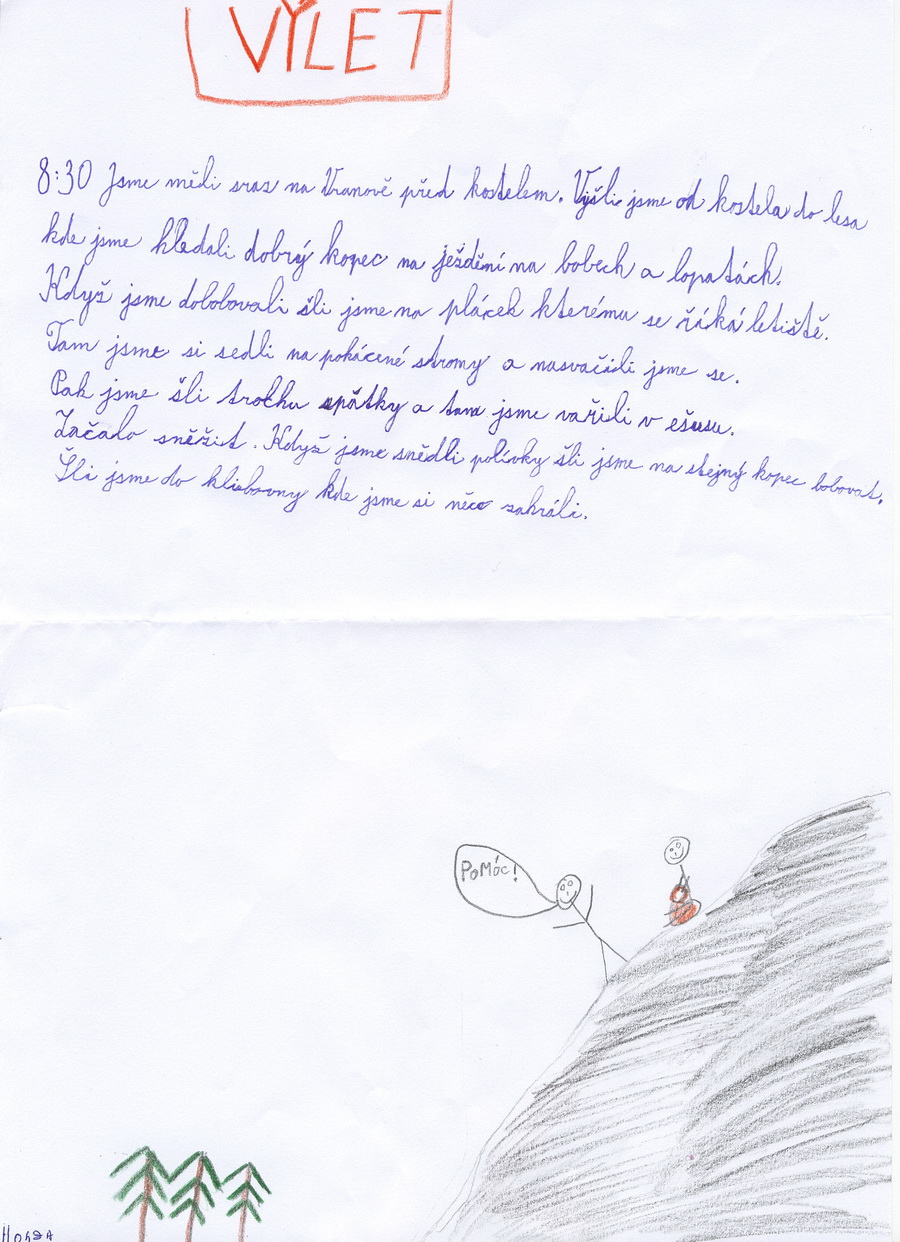 VÝLET
8:30 Jsme měli sraz na Vranově před kostelem. Vyšli jsme od kostela do lesa
kde jsme hledali dobrý kopec na ježdění na bobech a lopatách.
Když jsme dobobovali šli jsme na plácek kterému se řáká letiště.
Tam jsme si sedli na pokácené stromy a nasvačili jsme se.
Pak jsme šli trochu spátky a tam jsme vařili v ešusu.
Začalo sněžit. Když jsme snědli polívky šli jsme na stejný kopec bobovat.
Šli jsme do klubovny kde jsme si něco zahráli.
POMÓC!
HONZA